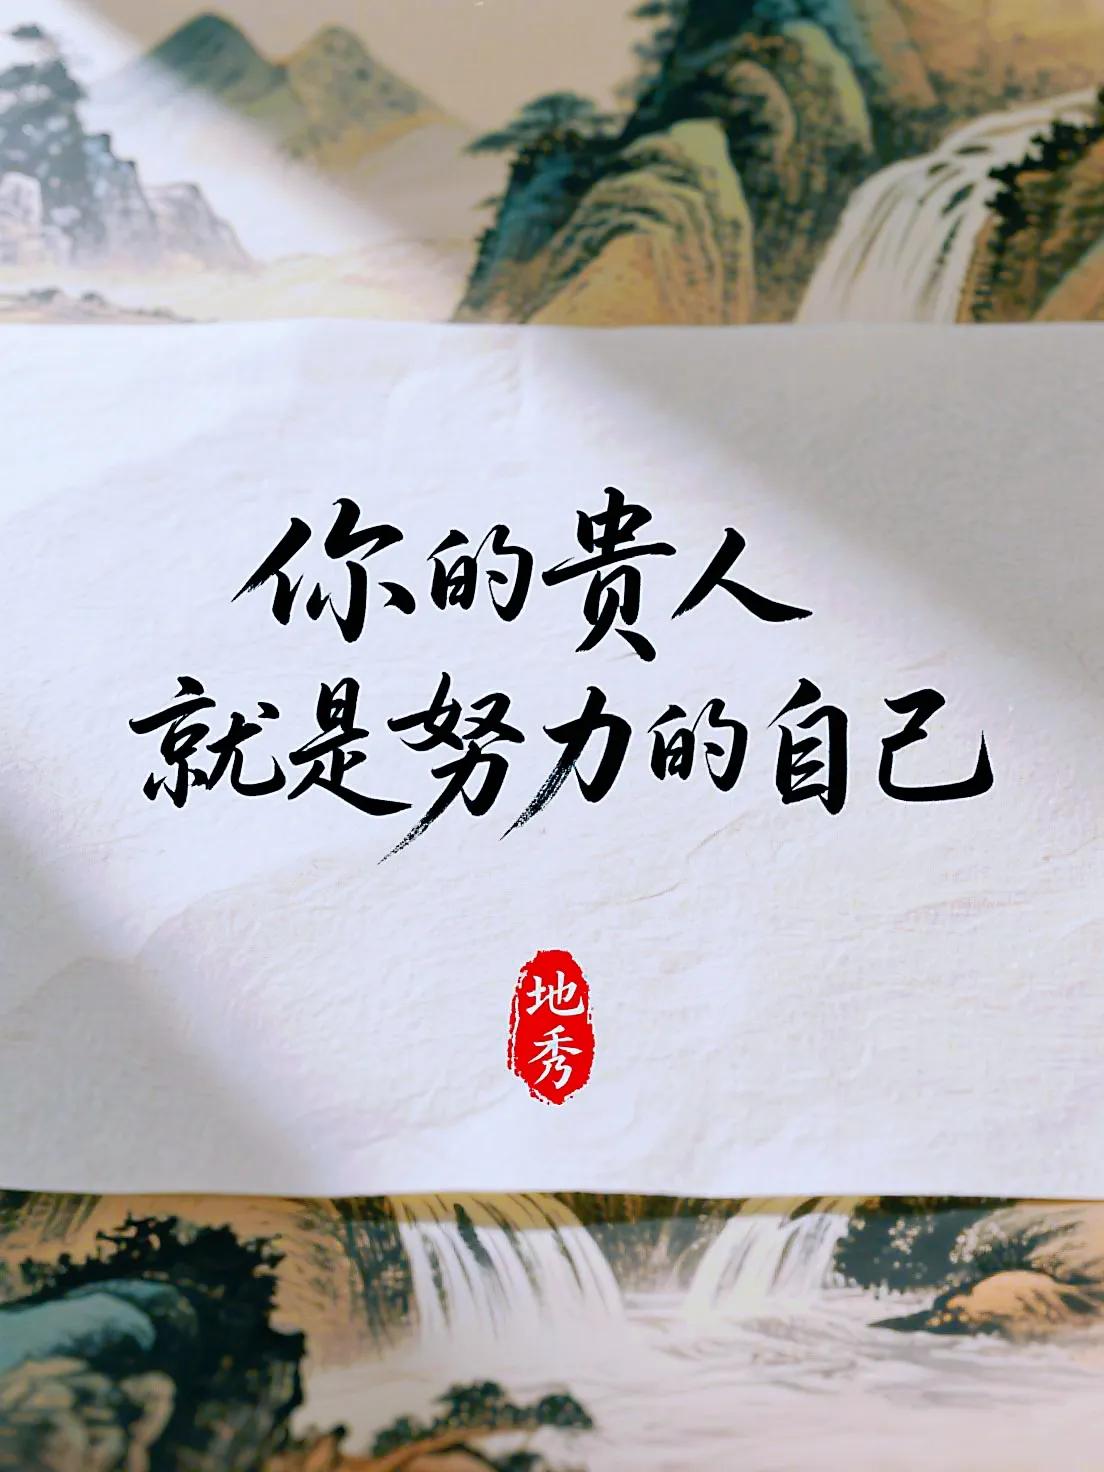 你的贵人
就是努力的自己
地
秀